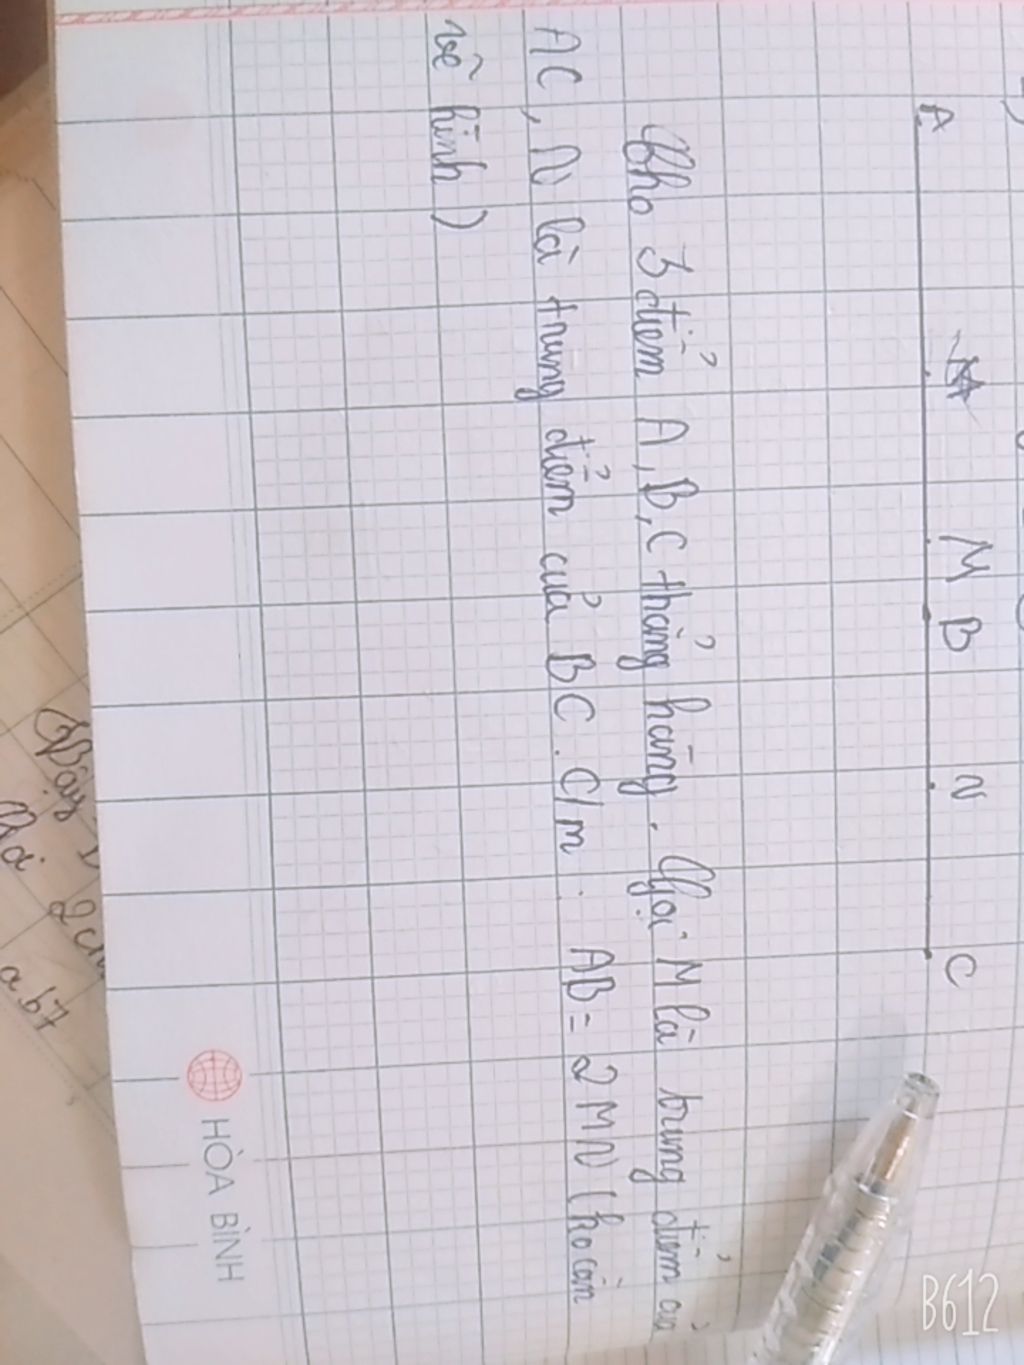 A M B N C
Cho 3 điểm A, B, C thẳng hàng. Gọi M là trung điểm của
AC, N là trung điểm của BC. C/m: AB = 2MN (ko cần
vẽ hình)
HÒA BÌNH
Vậy
2cm
a b7
B612